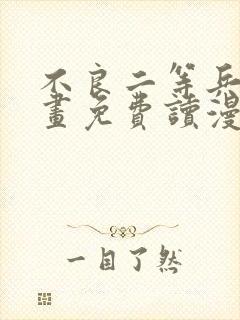 不良二等兵
畫免費讀漫
一目了然